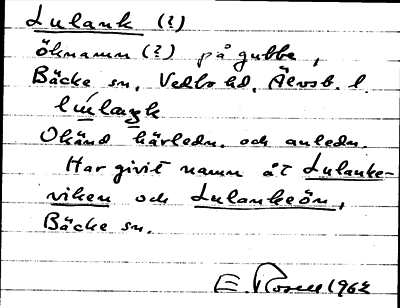 Lulank (?)
öknamn (?) på gubbe,
Bäcke sn, Vedbo hd, Älvsb. l.
Okänd härledn. och anledn.
Har givit namn åt Lulanke-
viken och Lulankeön,
Bäcke sn.
E. Rosell 1962